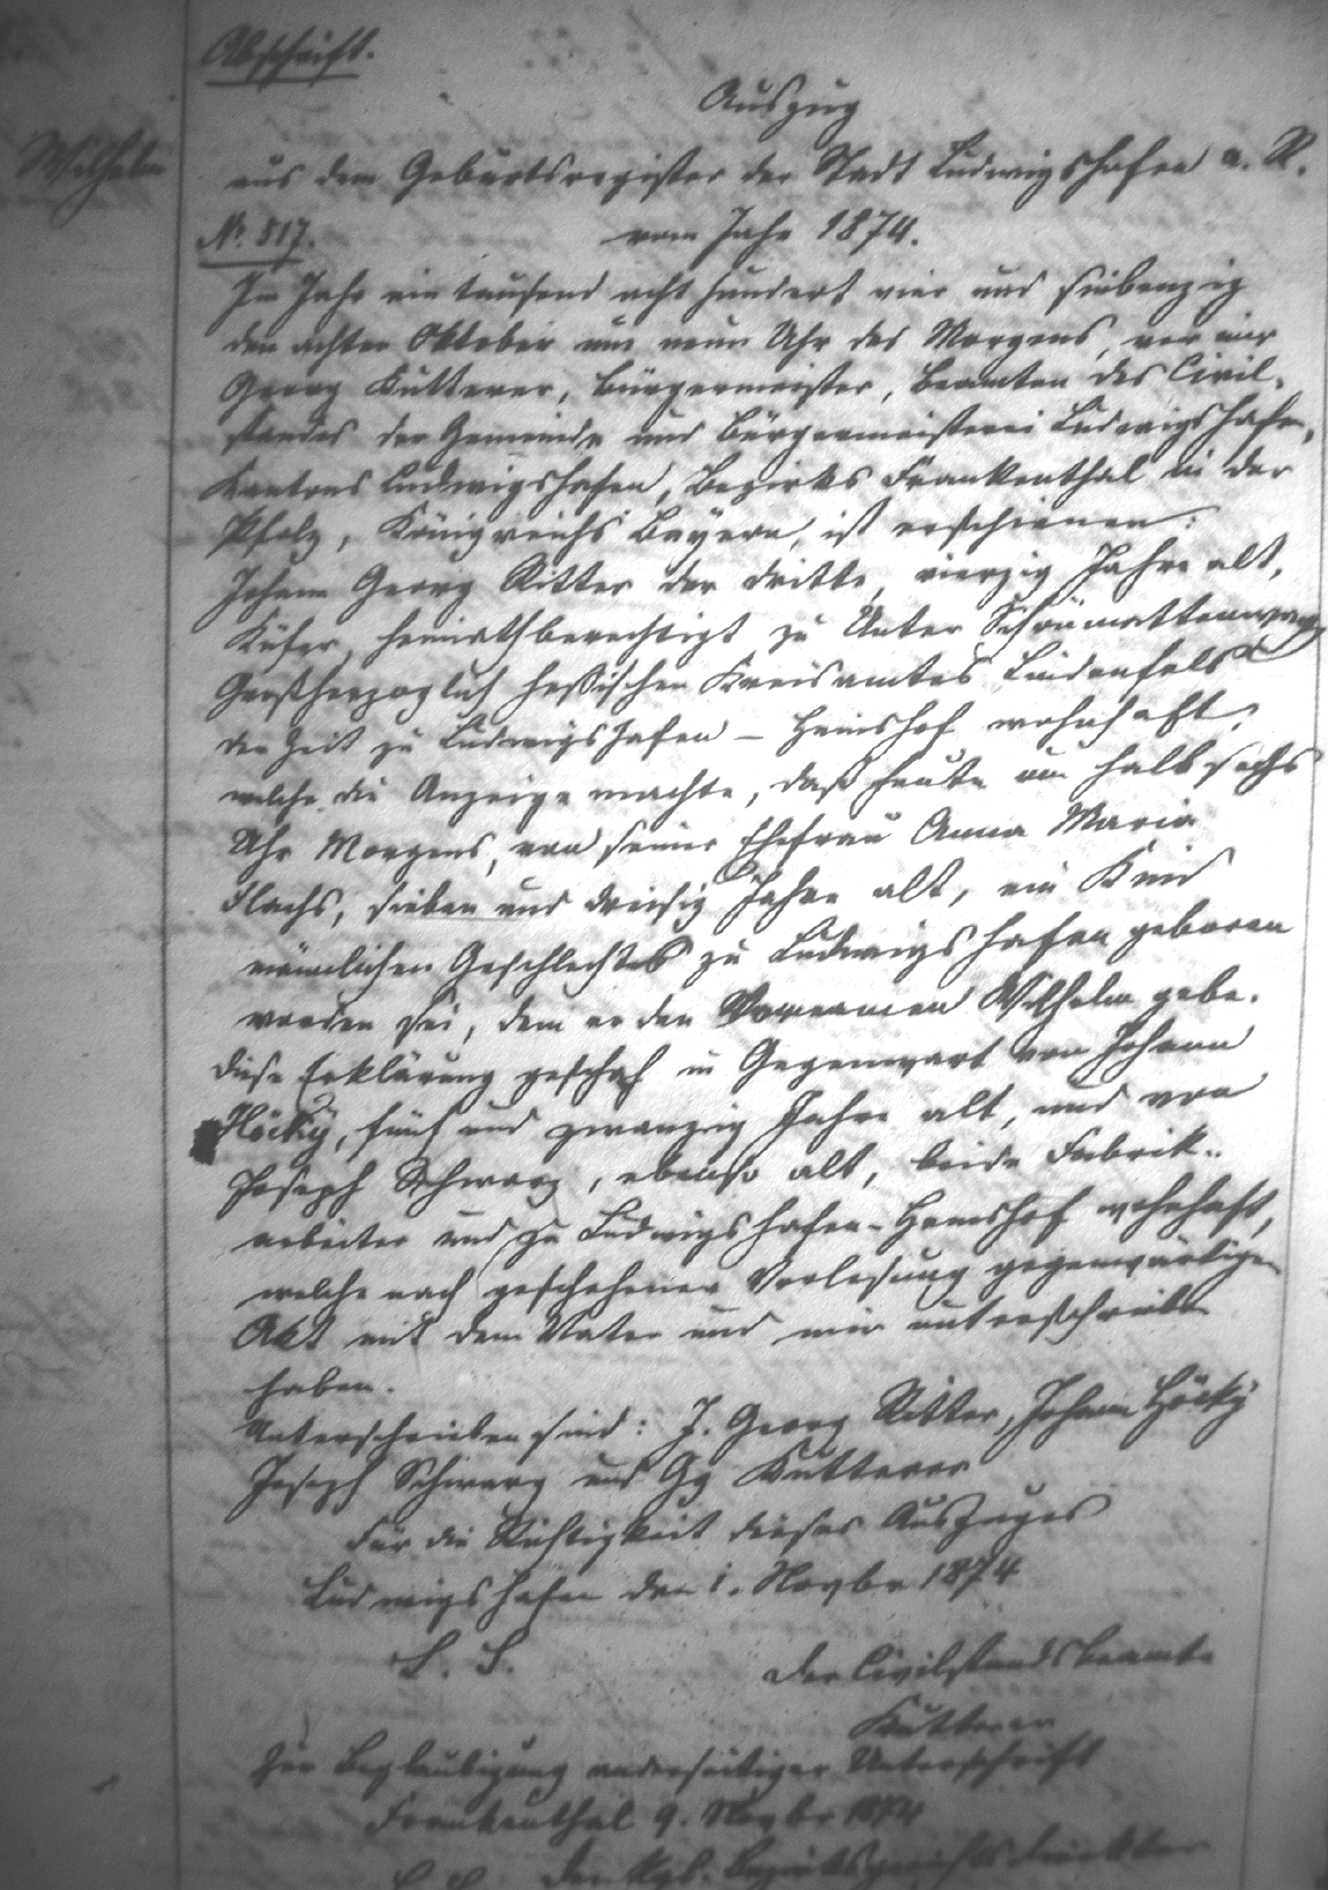 Abschrift.
Auszug
Wilhelm
aus dem Geburtsregister der Stadt Ludwigshafen a. R.
No. 517.
vom Jahr 1874.
Im Jahr ein tausend acht hundert vier und siebenzig
den achten Oktober um neun Uhr des Morgens, vor mir
Georg Kutterer, Bürgermeister, Beamten des Civil-
standes der Gemeinde und Bürgermeisterei Ludwigshafen,
Kantons Ludwigshafen, Bezirks Frankenthal in der
Pfalz, Königreichs Bayern, ist erschienen:
Johann Georg Ritter der dritte, vierzig Jahre alt,
Küfer, heimathberechtigt zu Unter Schönmattenwag,
Großherzoglich hessischen Kreisamtes Lindenfels
der Zeit zu Ludwigshafen - Hemshof wohnhaft,
welche die Anzeige machte, daß heute um halb sechs
Uhr Morgens, von seiner Ehefrau Anna Maria
Flachs, sieben und dreisig Jahre alt, ein Kind
männlichen Geschlechtes zu Ludwigshafen geboren
worden sei, dem er den Vornamen Wilhelm gebe.
Diese Erklärung geschah in Gegenwart von Johann
Höcky, fünf und zwanzig Jahre alt, und von
Joseph Schwarz, ebenso alt, beide Fabrik-
arbeiter und zu Ludwigshafen-Hemshof wohnhaft,
welche nach geschehener Vorlesung gegenwärtigen
Akt mit dem Vater und mir unterschrieben
haben.
Unterschrieben sind: J. Georg Ritter, Johann Höcky
Joseph Schwarz und Gg Kutterer
Für die Richtigkeit dieses Auszuges
Ludwigshafen den 1. Novbr 1874
L. S.
Der Civilstandsbeamte
Kutterer
Zur Beglaubigung anderseitiger Unterschrift
Frankenthal 9. Novbr 1874
L. S. Der Kgl. Bezirksgerichts